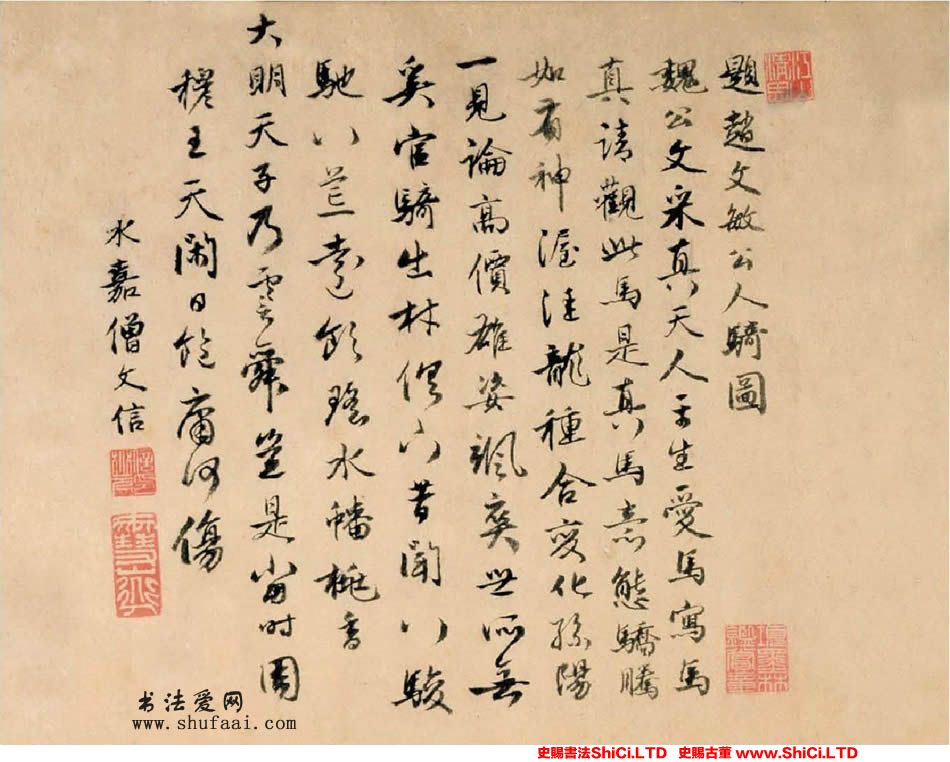 題趙文敏公人騎圖
魏公文采真天人平生愛馬寫馬
真請觀此馬是真馬意態驕騰
如有神渥洼龍種合變化孫陽
一見論高價雄姿颯爽世所無
奚官騎出林下昔聞八駿
馳八荒遠飲瑤水蟠桃香
大明天子乃舜豈是當時周
穆王天閑日飽庸何傷
永嘉僧文信
书法爱网
www.shufaai.com
史賜書法ShiCi.LTD 史賜古董 www.ShiCi.LTD